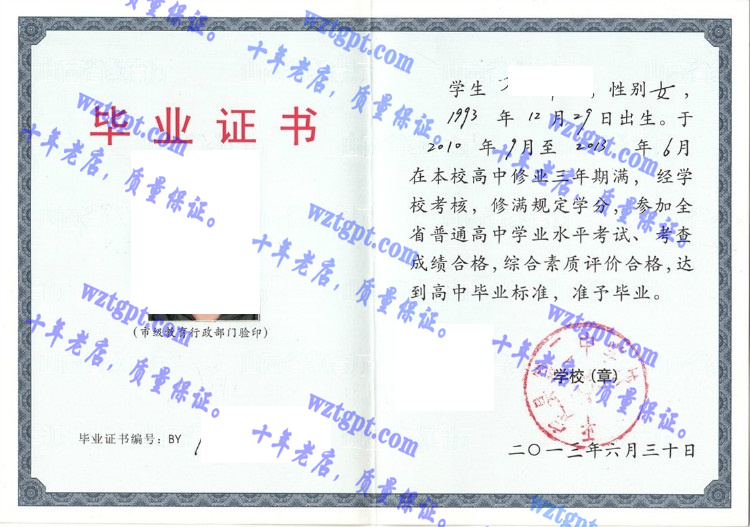 毕业证书
(市级教育行政部门验印)
毕业证书编号：BY
学生 ，性别女，
1993 年 12 月 29 日出生。于
2010 年 9 月至 2013 年 6 月
在本校高中修业三年期满，经学
校考核，修满规定学分，参加全
省普通高中学业水平考试、考查
成绩合格，综合素质评价合格，达
到高中毕业标准，准予毕业。
学校（章）
二〇一三年六月三十日
wztgpt.com
十年老店，质量保证。
wztgpt.com
十年老店，质量保证。
wztgpt.com
十年老店，质量保证。
wztgpt.com
十年老店，质量保证。
wztgpt.com
十年老店，质量保证。
wztgpt.com
十年老店，质量保证。
wztgpt.com
十年老店，质量保证。